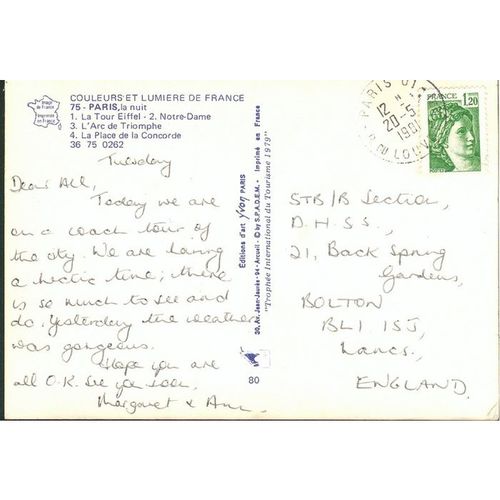 Image de France
Imprimée en France
COULEURS ET LUMIERE DE FRANCE
75 - PARIS, la nuit
1. La Tour Eiffel - 2. Notre-Dame
3. L'Arc de Triomphe
4. La Place de la Concorde
36 75 0262
Tuesday
Dear All,
Today we are
on a coach tour of
the city. We are having
a hectic time; there
is so much to see and
do. Yesterday the weather
was gorgeous.
Hope you are
all O.K. See you soon,
Margaret & Ann.
Editions d'art yvon PARIS
30, Av. Jean-Jaurès - 94 - Arcueil - © by S.P.A.D.E.M. - Imprimé en France
"Trophée International du Tourisme 1979"
80
PARIS 01
12 H
20-5
1981
R. DU LOUVRE
FRANCE
1,20
STB/B Section,
D.H.S.S.,
21, Back Spring
Gardens,
BOLTON
BL1 1SJ,
Lancs.,
ENGLAND.